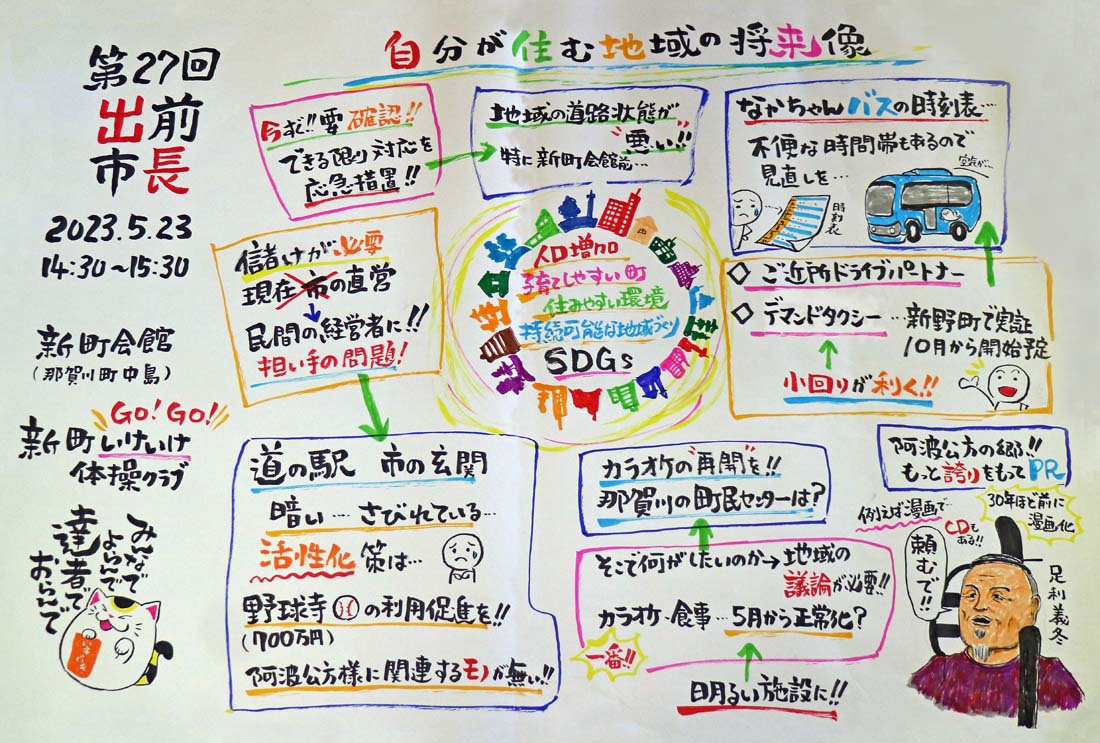 自分が住む地域の将来像
第27回
出前
市長
2023.5.23
14:30～15:30
新町会館
(那賀川町中島)
GO! GO!
新町いけいけ
体操クラブ
みんなで
よらんで
達者で
おらんで
今すぐ!!要確認!!
できる限り対応を
応急措置!!
地域の道路状態が
"悪い!!"
特に新町会館前…
なかちゃんバスの時刻表…
不便な時間帯もあるので
見直しを…
空気が…
時刻表
儲けが必要
現在市の直営
民間の経営者に!!
担い手の問題!
人口増加
子育てしやすい町
住みやすい環境
持続可能な地域づくり
SDGs
◇ご近所ドライブパートナー
◇デマンドタクシー…新野町で実証
10月から開始予定
小回りが利く!!
道の駅 市の玄関
暗い…さびれている…
活性化策は…
野球寺の利用促進を!!
(700万円)
阿波公方様に関連するモノが無い!!
カラオケの"再開"を!!
那賀川の町民センターは?
そこで何がしたいのか→地域の
議論が必要!!
カラオケ・食事…5月から正常化?
一番!!
明るい施設に!!
阿波公方の郷!!
もっと誇りをもってPR
例えば漫画で…
CDも
ある!!
30年ほど前に
漫画化
頼むで!!
足利義冬